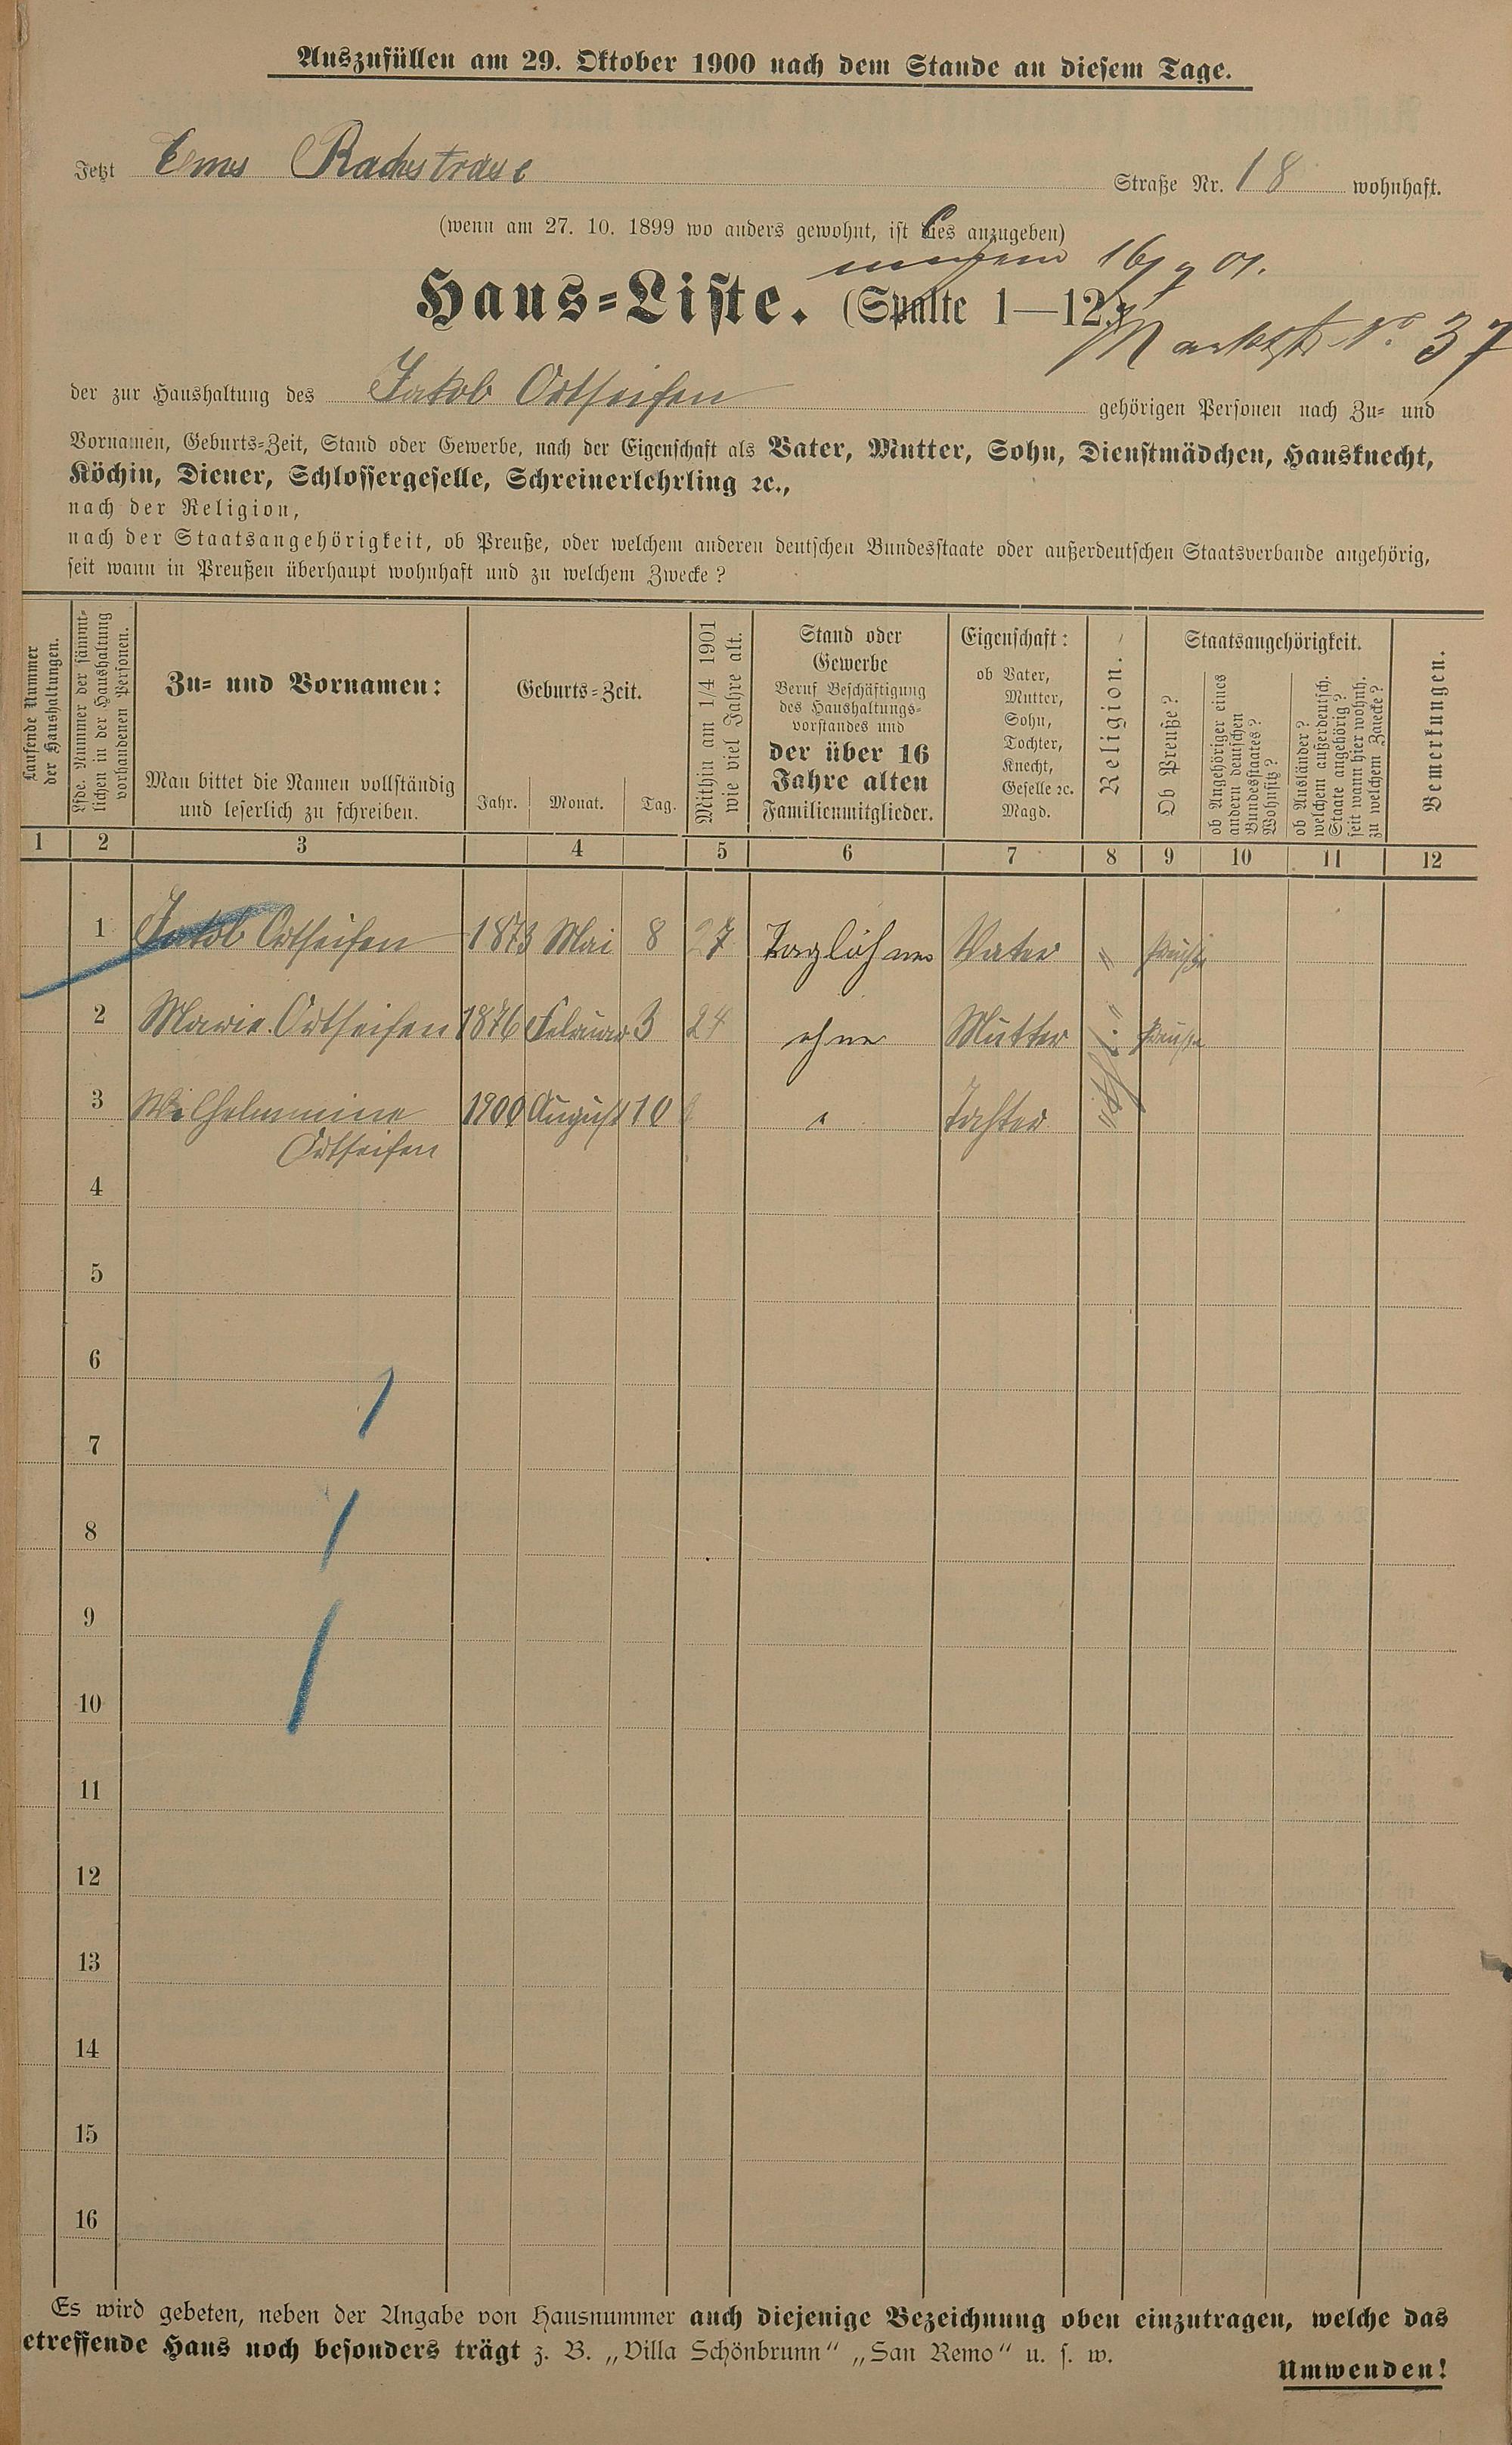 Auszufüllen am 29. Oktober 1900 nach dem Stande an diesem Tage.
Jetzt Ems Straße Nr. 18 wohnhaft.
(wenn am 27. 10. 1899 wo anders gewohnt, ist dies anzugeben)
Haus-Liste. (Spalte 1—12.)
Marktstr No. 37
der zur Haushaltung des Jakob Ortseifen gehörigen Personen nach Zu- und
Vornamen, Geburts-Zeit, Stand oder Gewerbe, nach der Eigenschaft als Vater, Mutter, Sohn, Dienstmädchen, Hausknecht,
Köchin, Diener, Schlossergeselle, Schreinerlehrling ꝛc.,
nach der Religion,
nach der Staatsangehörigkeit, ob Preuße, oder welchem anderen deutschen Bundesstaate oder außerdeutschen Staatsverbande angehörig,
seit wann in Preußen überhaupt wohnhaft und zu welchem Zwecke?
Laufende Nummer
der Haushaltungen.
Lfde. Nummer der sämmt-
lichen in der Haushaltung
vorhandenen Personen.
Zu- und Vornamen:
Man bittet die Namen vollständig
und leserlich zu schreiben.
Geburts-Zeit.
Jahr. Monat. Tag.
Mithin am 1/4 1901
wie viel Jahre alt.
Stand oder
Gewerbe
Beruf Beschäftigung
des Haushaltungs-
vorstandes und
der über 16
Jahre alten
Familienmitglieder.
Eigenschaft:
ob Vater,
Mutter,
Sohn,
Tochter,
Knecht,
Geselle ꝛc.
Magd.
Religion.
Staatsangehörigkeit.
Ob Preuße?
ob Angehöriger eines
andern deutschen
Bundesstaates?
Wohnsitz?
ob Ausländer?
welchem außerdeutsch.
Staate angehörig?
seit wann hier wohnh.
zu welchem Zwecke?
Bemerkungen.
1 2 3 4 5 6 7 8 9 10 11 12
1 Jakob Ortseifen 1873 Mai 8 27 Taglöhner Vater " Preuße
2 Marie Ortseifen 1876 Februar 3 24 ohne Mutter " Preuße
3 Wilhelmmine 1900 August 10 " Tochter
Ortseifen
4
5
6
7
8
9
10
11
12
13
14
15
16
Es wird gebeten, neben der Angabe von Hausnummer auch diejenige Bezeichnung oben einzutragen, welche das
etreffende Haus noch besonders trägt z. B. „Villa Schönbrunn“ „San Remo“ u. s. w.
Umwenden!